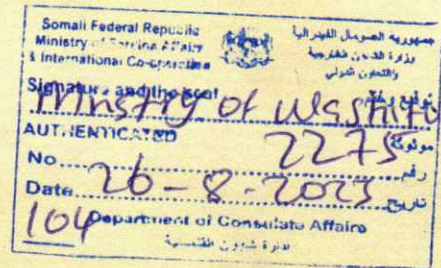 Somali Federal Republic
Ministry of Foreign Affairs
& International Co-operation
جمهورية الصومال الفيدرالية
وزارة الشئون الخارجية
والتعاون الدولي
Signature and the seal
Ministry of
AUTHENTICATED
No. 2275 رقم
Date 26-8-2023 تاريخ
104 Department of Consulate Affairs